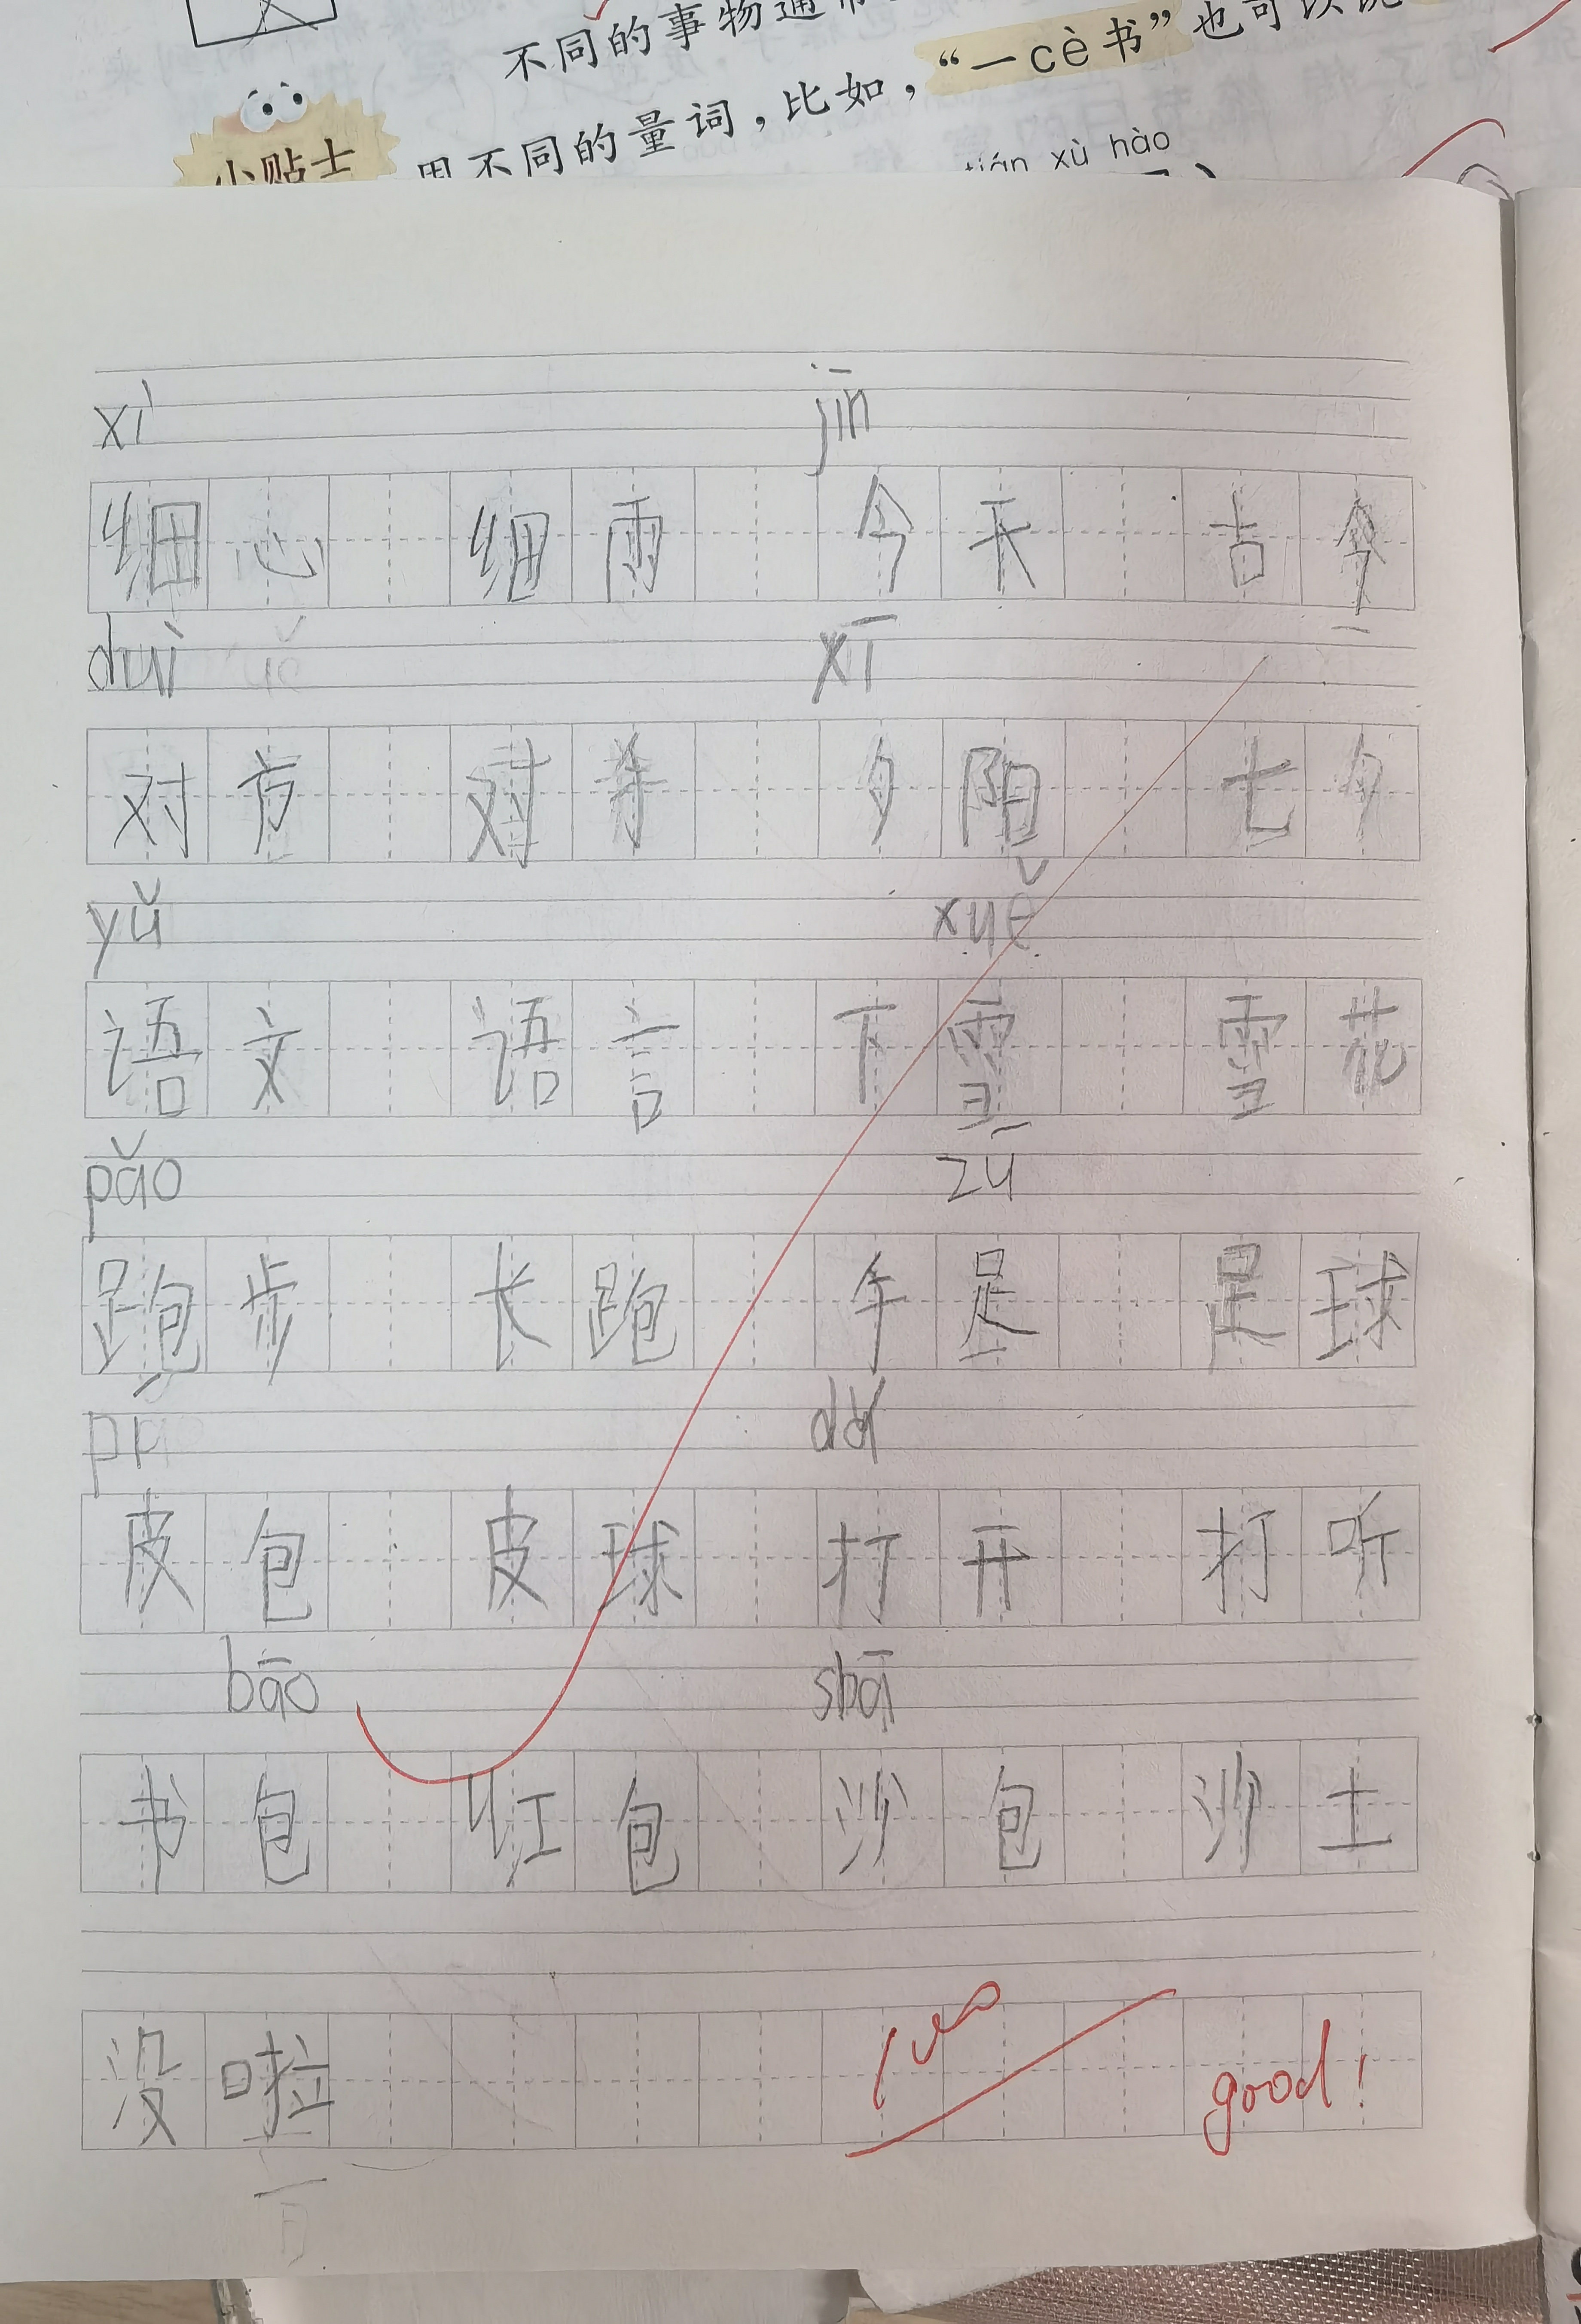 不同的事物通常
用不同的量词，比如，“一cè书”也可以说
小贴士
tián xù hào
xì jīn
细心 细雨 今天 古今
duì xī
对方 对半 夕阳 七夕
yǔ xuě
语文 语言 下雪 雪花
pǎo zú
跑步 长跑 手足 足球
pí dǎ
皮包 皮球 打开 打听
bāo shā
书包 红包 沙包 沙土
没啦
100
good!